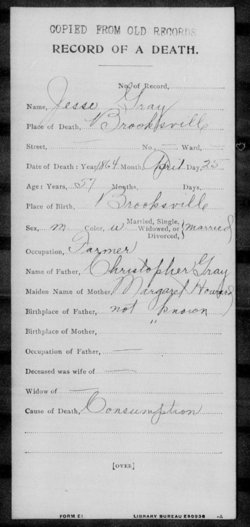 COPIED FROM OLD RECORDS
RECORD OF A DEATH.
No. of Record,
Name, Jesse Gray
Place of Death, Brooksville
Street, — No. — Ward, —
Date of Death: Year, 1864 Month, April Day, 25
Age: Years, 37 Months, Days,
Place of Birth, Brooksville
Sex, m Color, w Married, Single, Widowed, or Divorced, (married)
Occupation, Farmer
Name of Father, Christopher Gray
Maiden Name of Mother, Margaret Howard
Birthplace of Father, not known
Birthplace of Mother, "
Occupation of Father, —
Deceased was wife of —
Widow of —
Cause of Death, Consumption
[OVER]
FORM E1 LIBRARY BUREAU